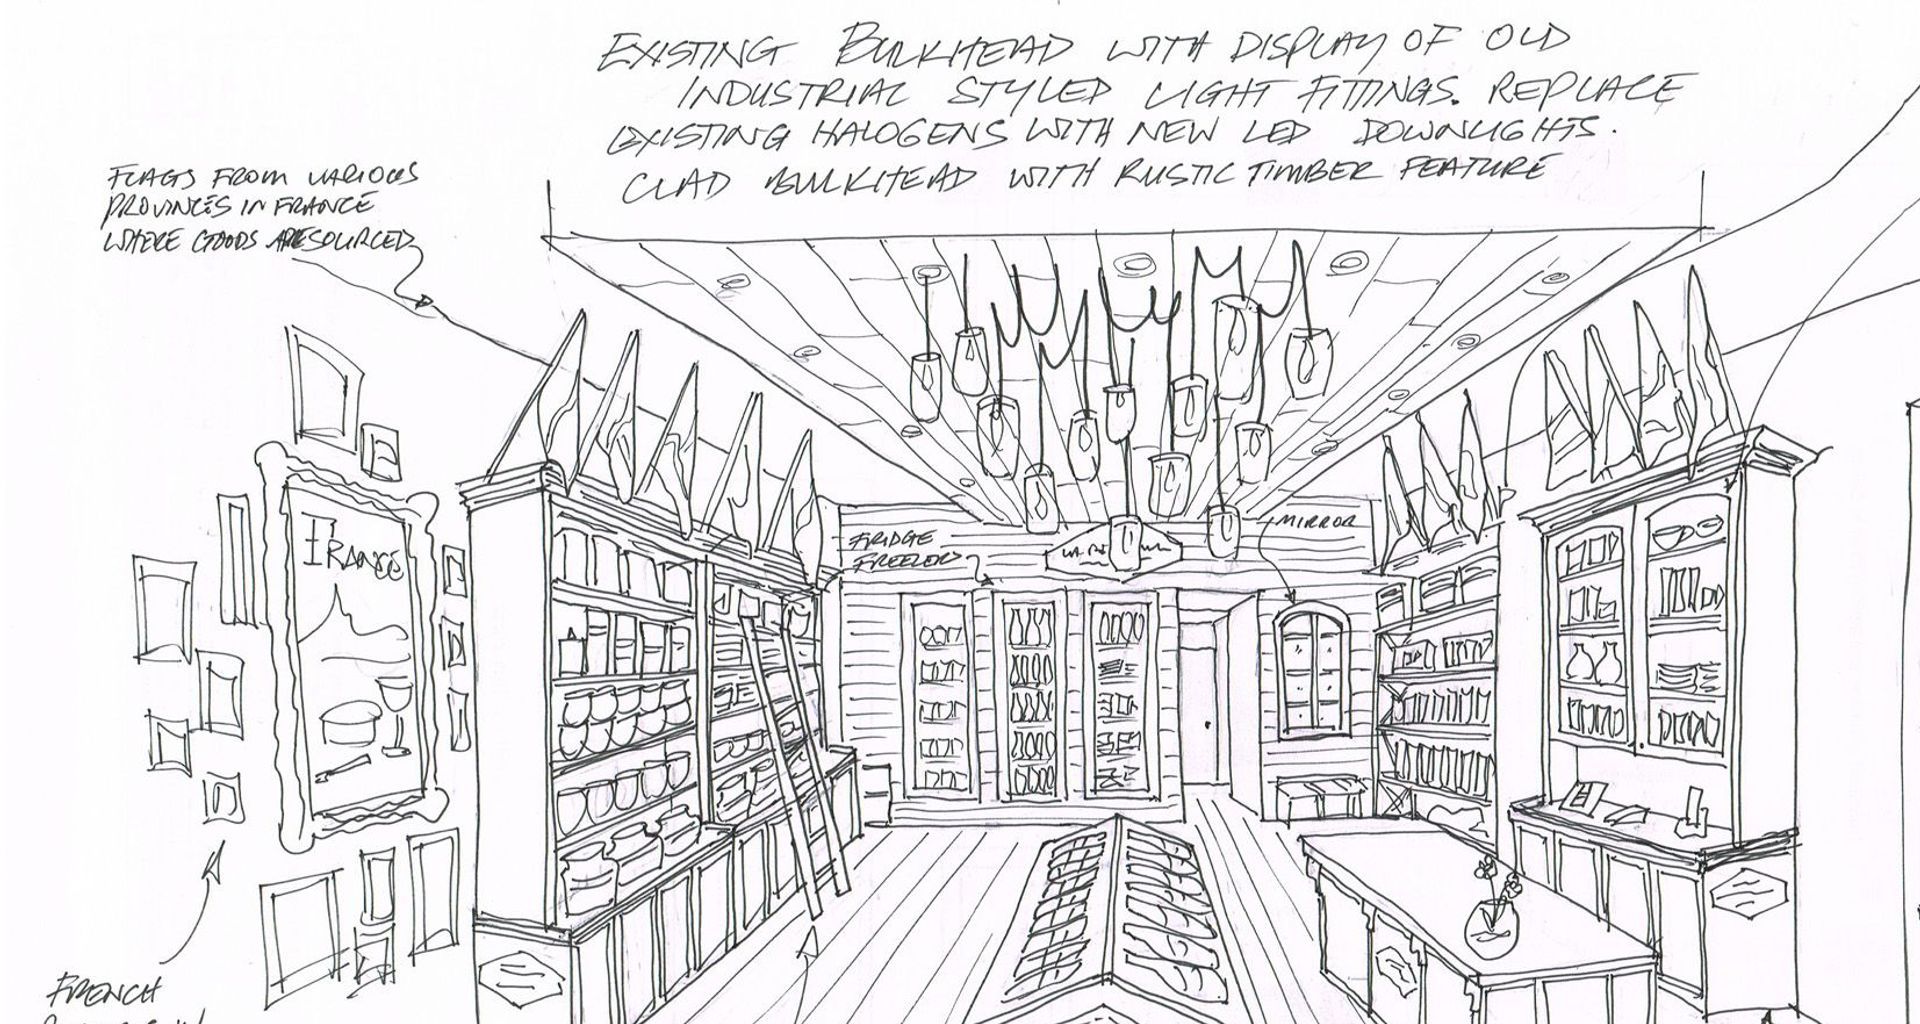 EXISTING BULKHEAD WITH DISPLAY OF OLD
INDUSTRIAL STYLED LIGHT FITTINGS. REPLACE
EXISTING HALOGENS WITH NEW LED DOWNLIGHTS.
CLAD BULKHEAD WITH RUSTIC TIMBER FEATURE
FLAGS FROM VARIOUS
PROVINCES IN FRANCE
WHERE GOODS ARE SOURCED
FRANCE
FRIDGE
FREEZER
MIRROR
FRENCH